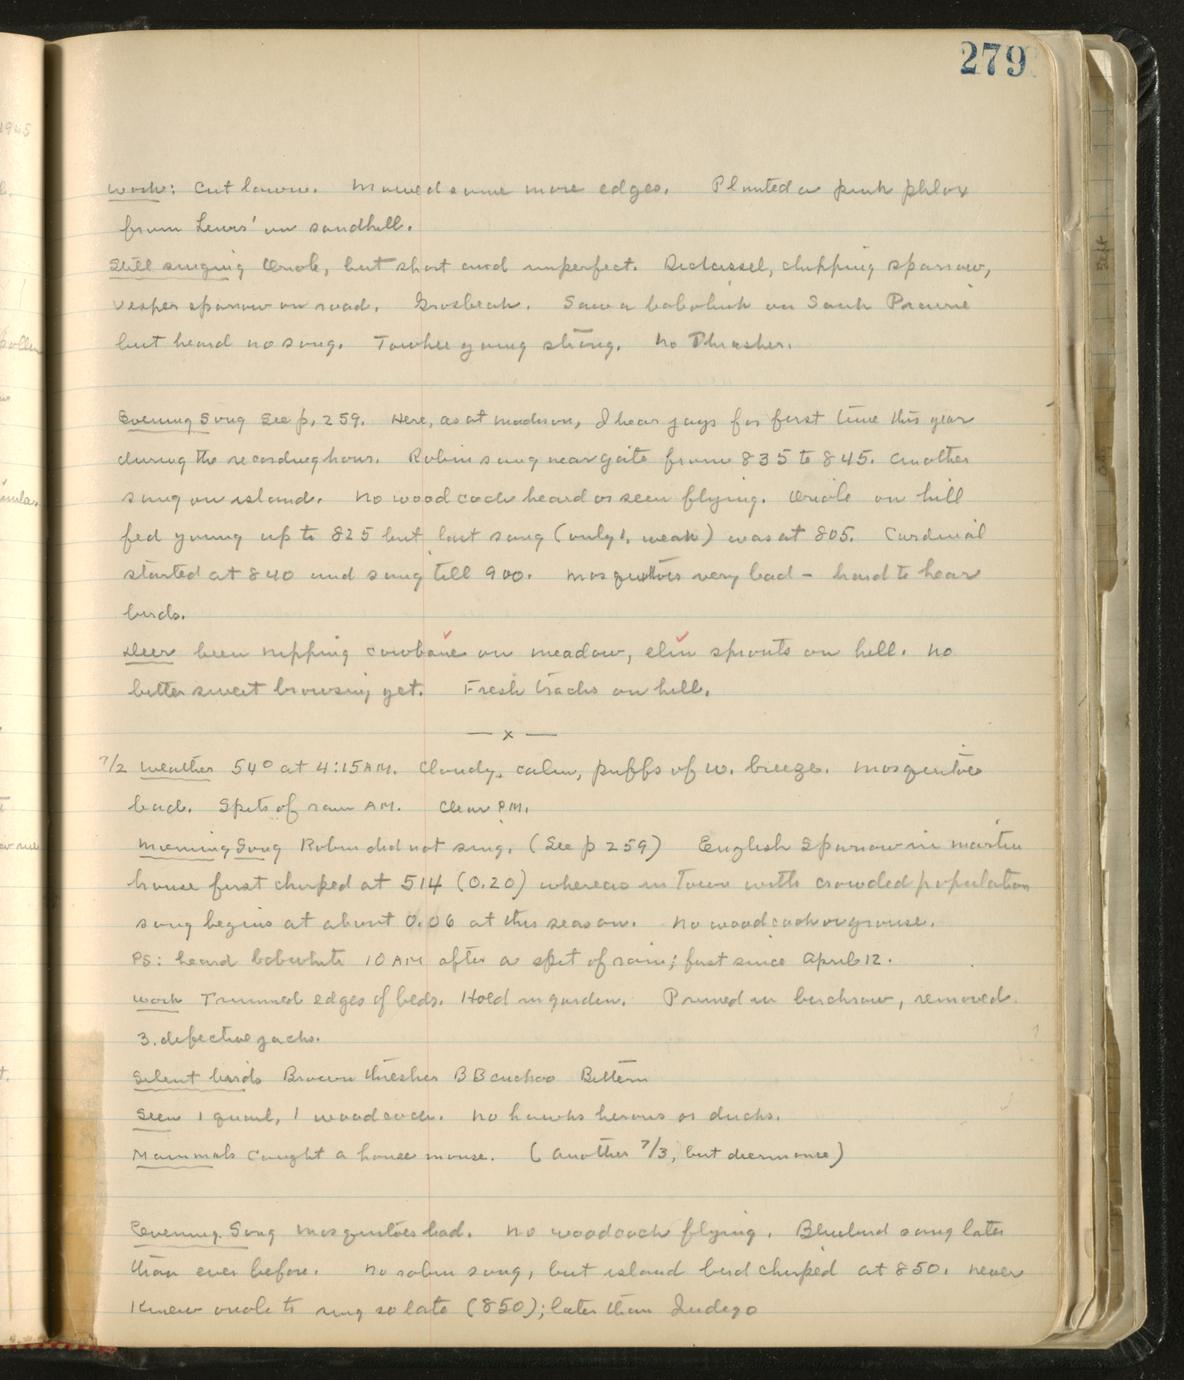 279
Work: Cut lawn. Mowed some more edges. Planted a pink phlox
from Lewis' on sandhill.
Still singing Oriole, but short and imperfect. Dickcissel, chipping sparrow,
vesper sparrow on road, Grosbeak. Saw a bobolink on Sauk Prairie
but heard no song. Towhee young strong. No Thrasher.
Evening Song See p. 259. Here, as at Madison, I hear jays for first time this year
during the recording hour. Robin sang near gate from 835 to 845. Another
sang on island. No woodcock heard or seen flying. Oriole on hill
fed young up to 825 but last song (only 1, weak) was at 805. Cardinal
started at 840 and sang till 900. Mosquitoes very bad - hard to hear
birds.
Deer been nipping cowbane on meadow, elm sprouts on hill. No
bittersweet browsing yet. Fresh tracks on hill.
— x —
7/2 Weather 54° at 4:15 AM. Cloudy, calm, puffs of W. breeze. Mosquitoes
bad. Spits of rain AM. Clear PM.
Morning Song Robin did not sing. (See p 259) English Sparrow in martin
house first chirped at 514 (0.20) whereas in Town with crowded population
song begins at about 0.06 at this season. No woodcock or grouse.
PS: heard bobwhite 10 AM after a spit of rain; first since April 12.
Work Trimmed edges of beds. Hoed in garden. Pruned in birchrow, removed
3 defective jacks.
Silent birds Brown thrasher BB cuckoo Bittern
Seen 1 quail, 1 woodcock. No hawks herons or ducks.
Mammals Caught a house mouse. (Another 7/3, but deermouse)
Evening Song Mosquitoes bad. No woodcock flying. Bluebird sang later
than ever before. No robin song, but island bird chirped at 850. Never
knew oriole to sing so late (850); later than Indigo